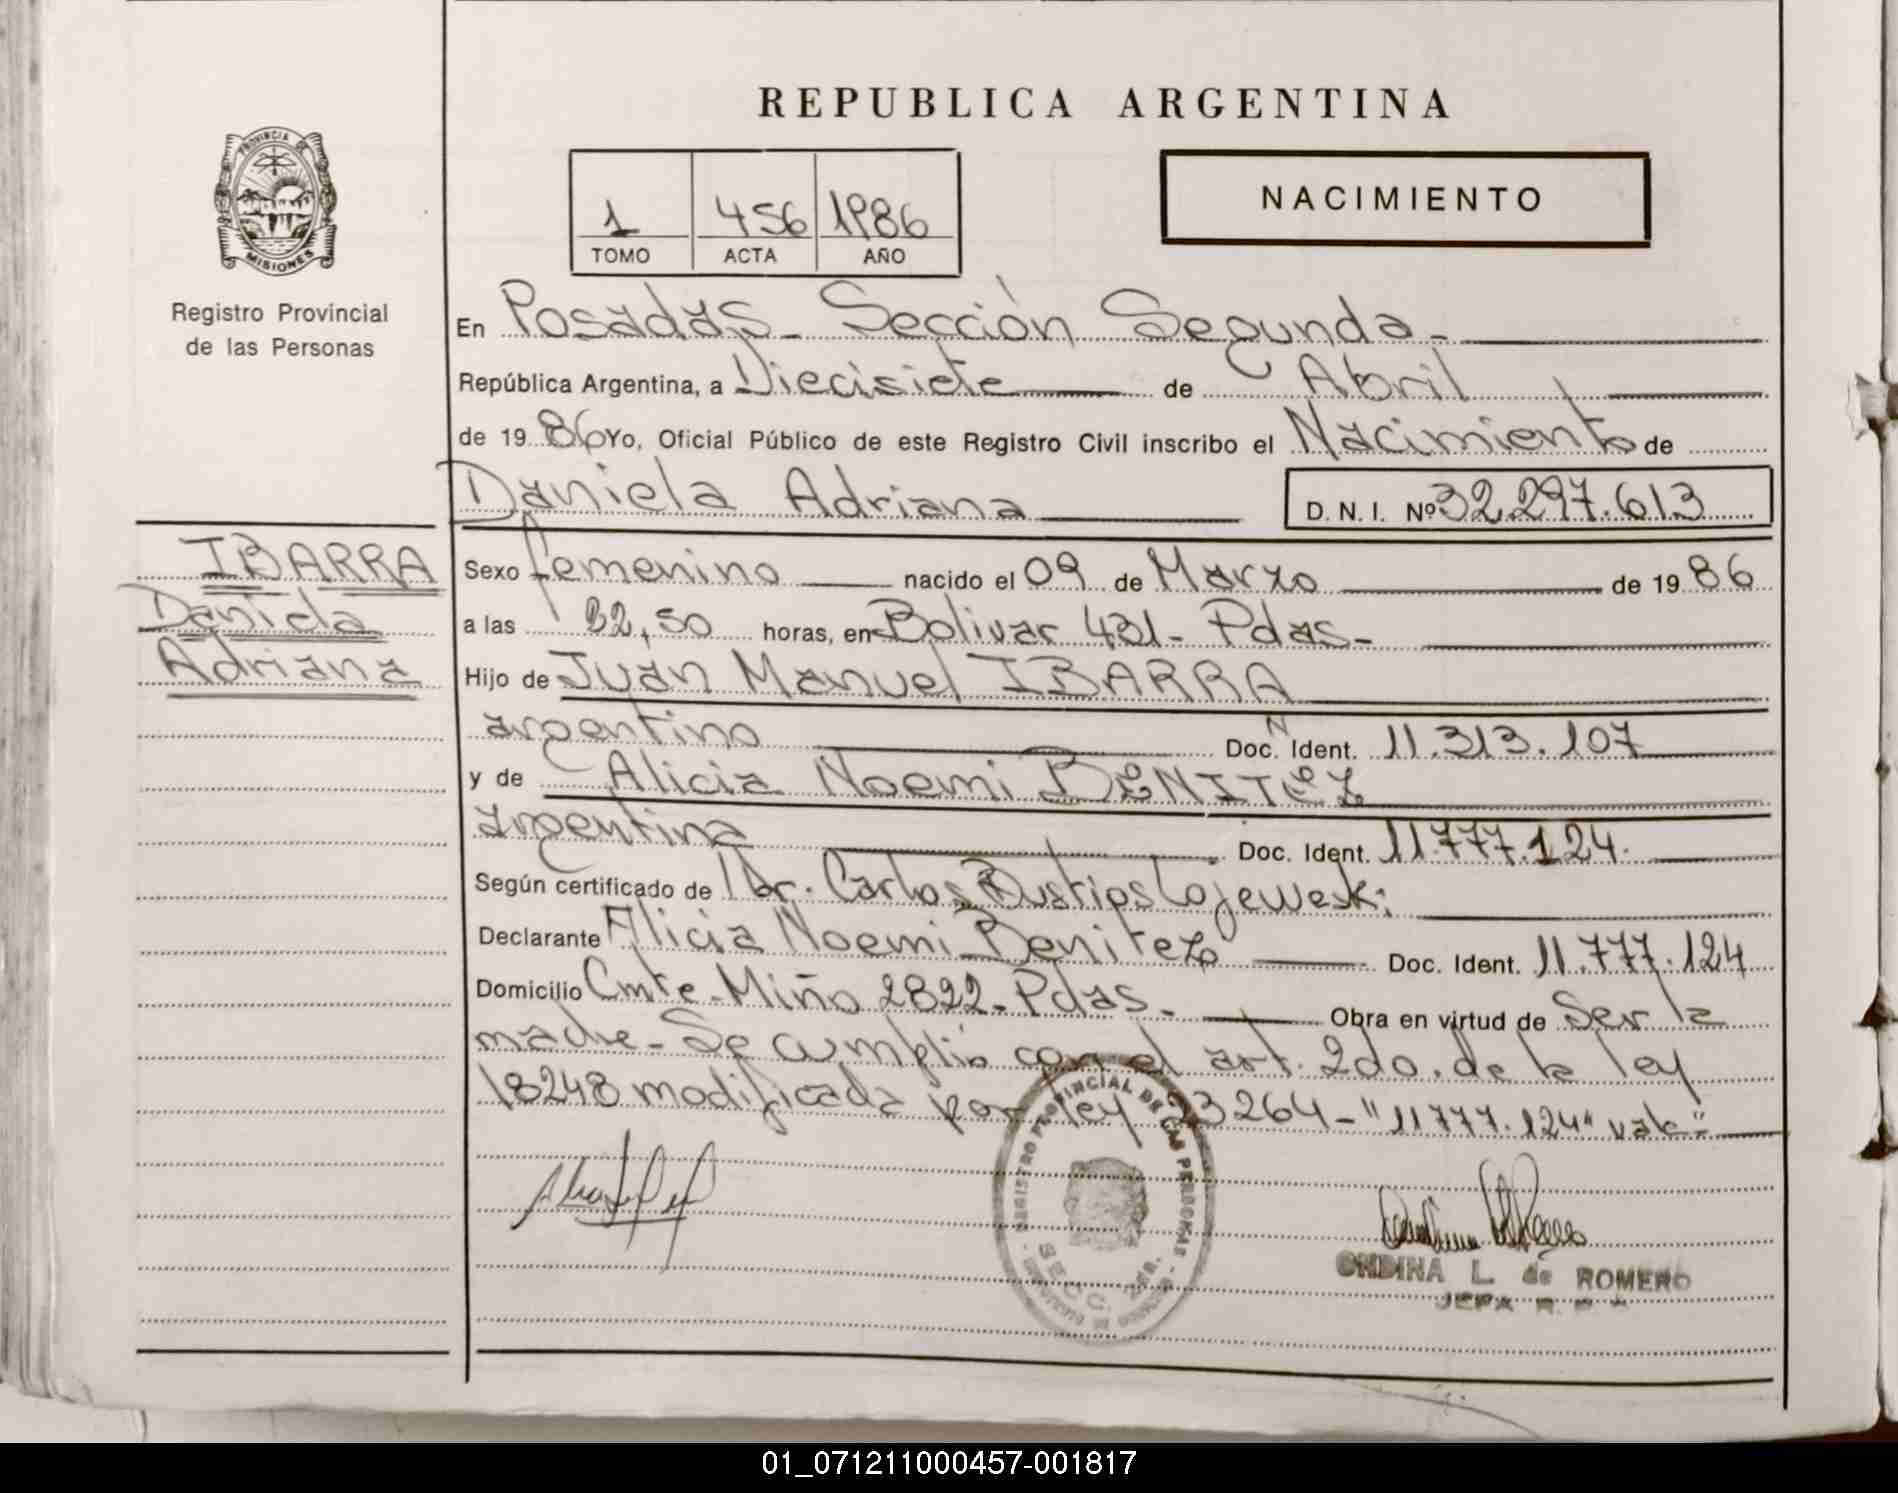 REPUBLICA ARGENTINA
PROVINCIA DE
MISIONES
Registro Provincial
de las Personas
1 456 1986
TOMO ACTA AÑO
NACIMIENTO
En Posadas - Sección Segunda -
República Argentina, a Diecisiete de Abril
de 1986 Yo, Oficial Público de este Registro Civil inscribo el Nacimiento de
Daniela Adriana D. N. I. Nº 32.297.613
IBARRA
Daniela
Adriana
Sexo femenino nacido el 09 de Marzo de 1986
a las 22,50 horas, en Bolivar 431 - Pdas -
Hijo de Juan Manuel IBARRA
argentino Doc. Ident. 11.313.107
y de Alicia Noemi BENITEZ
argentina Doc. Ident. 11.777.124.
Según certificado de Dr. Carlos
Declarante Alicia Noemi Benitez Doc. Ident. 11.777.124
Domicilio Cmte. Miño 2822 - Pdas. Obra en virtud de Ser la
madre - Se cumplió con el art. 2do. de la ley
18248 modificada por ley 23264 - "11777.124" vale -
REGISTRO PROVINCIAL DE LAS PERSONAS
SECC.
ONDINA L. de ROMERO
JEFA
01_071211000457-001817